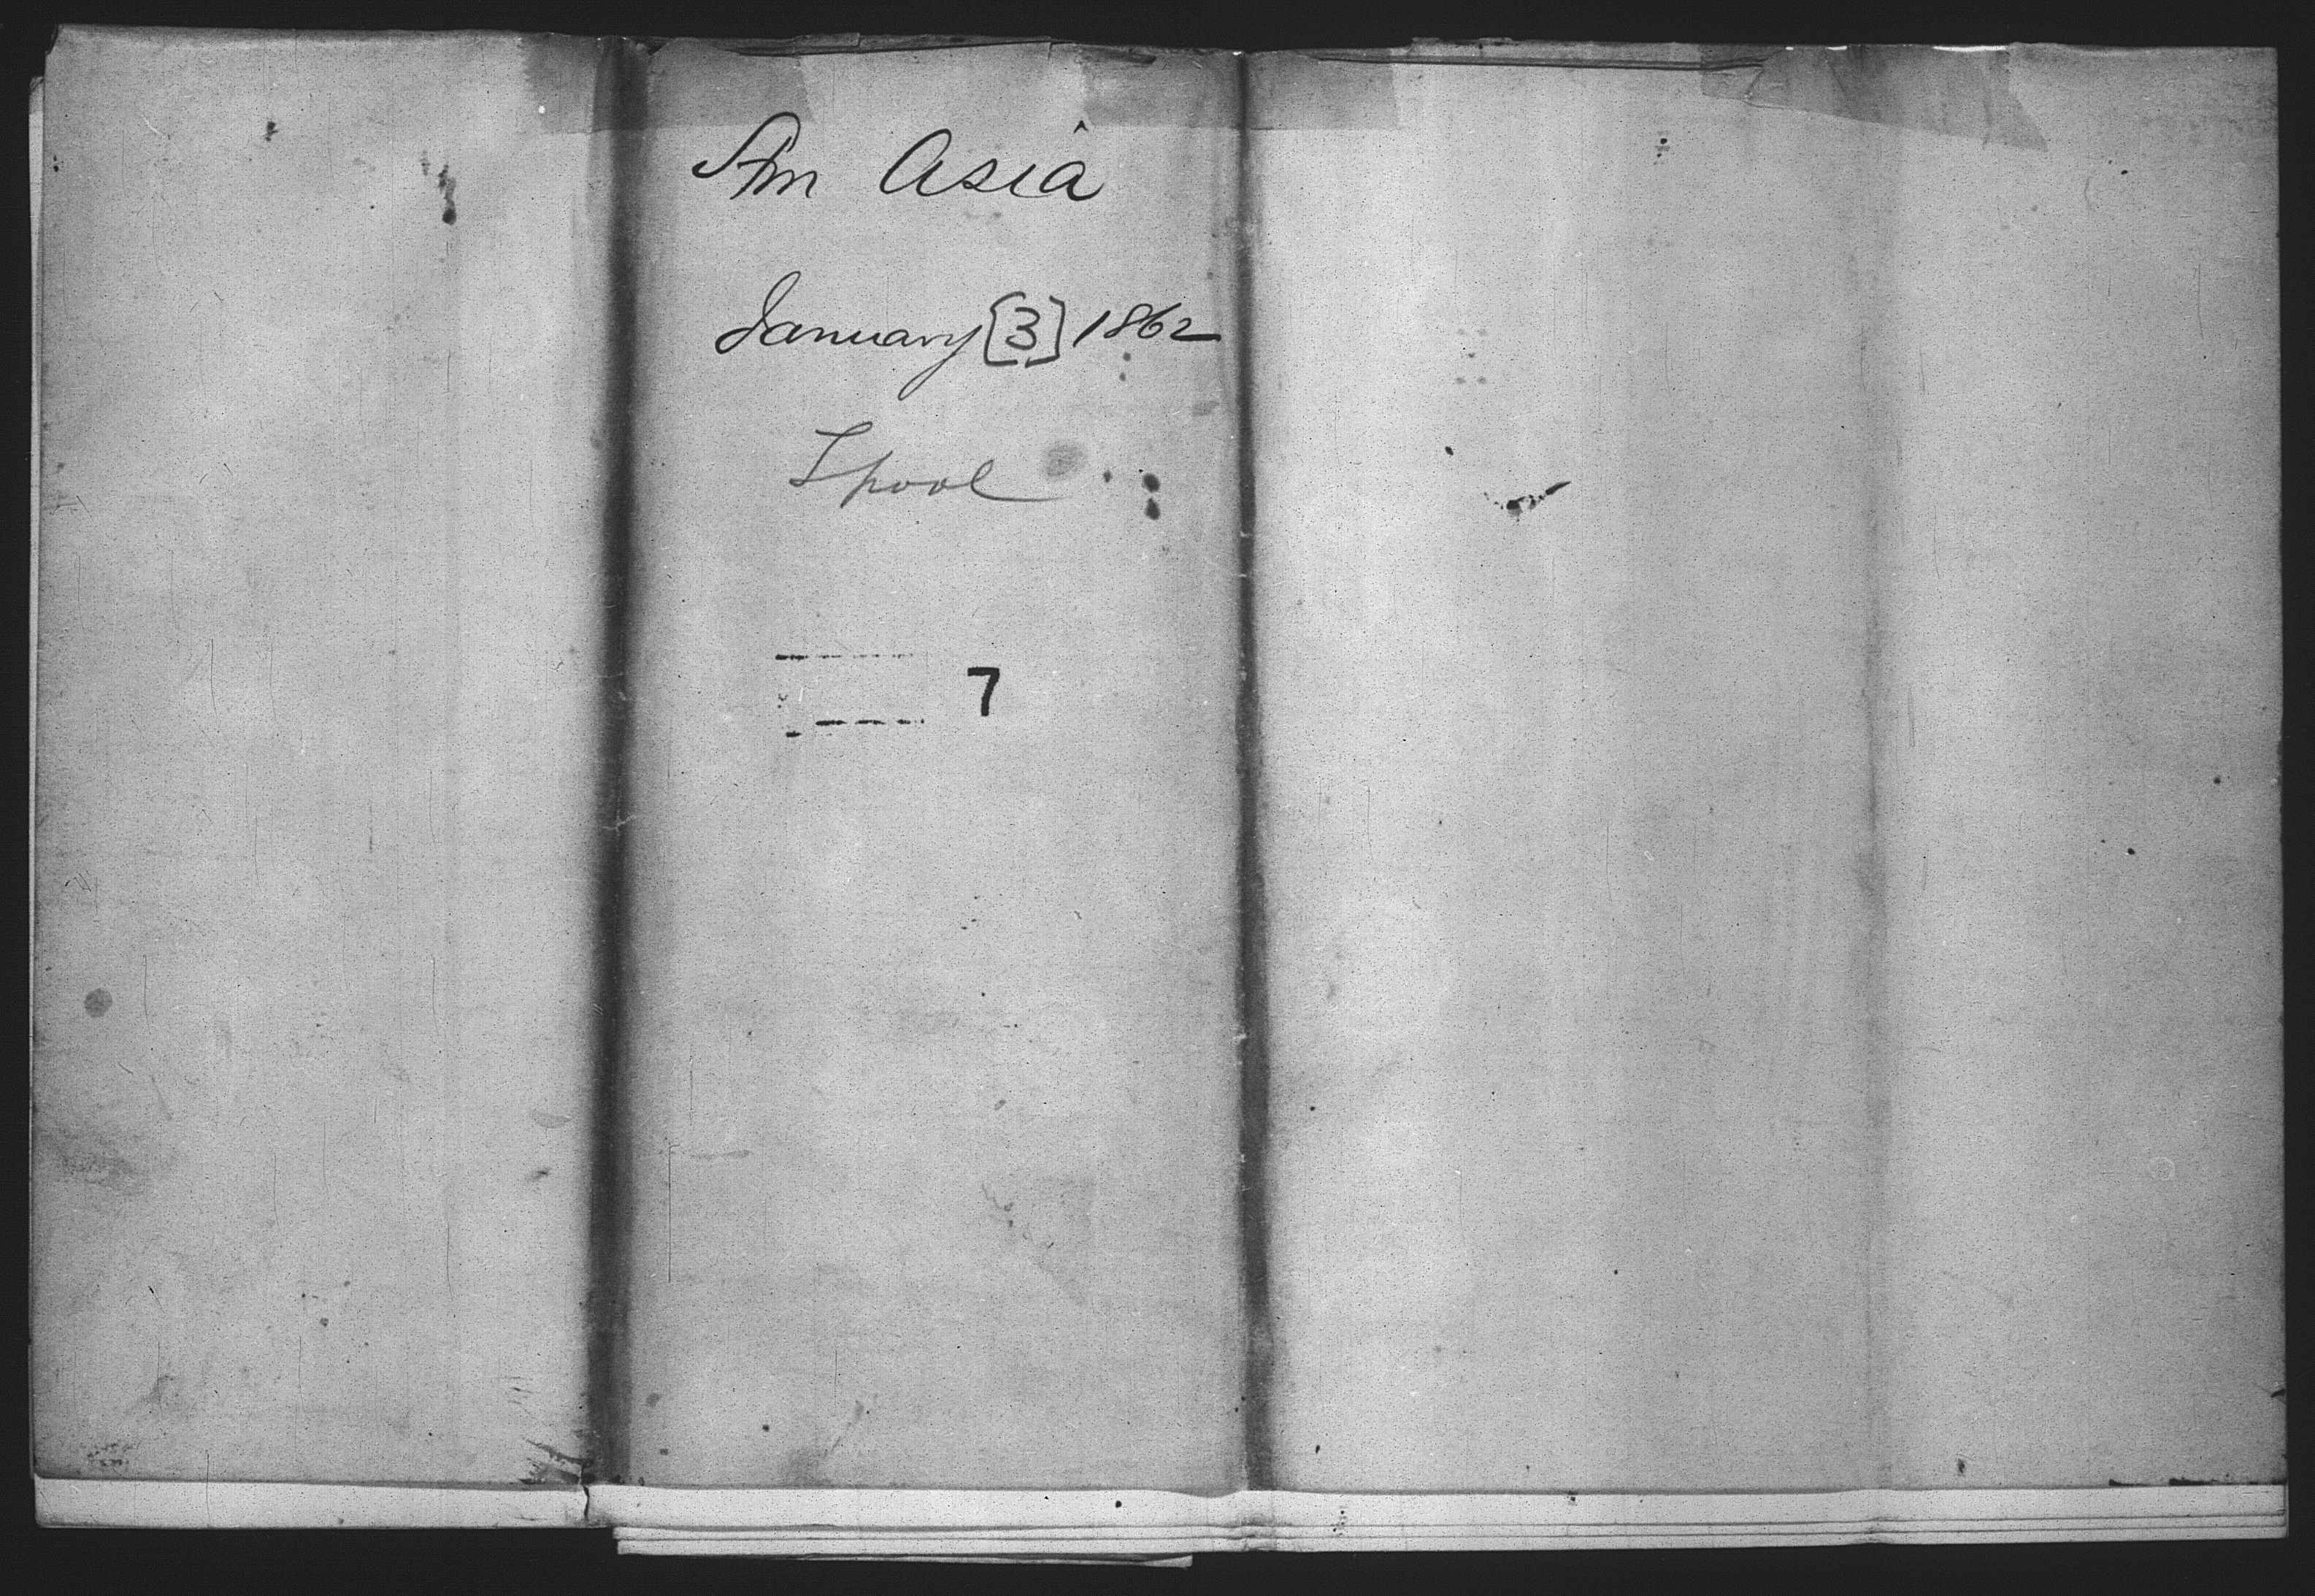 Stm Asia
January [3] 1862
Lpool
7